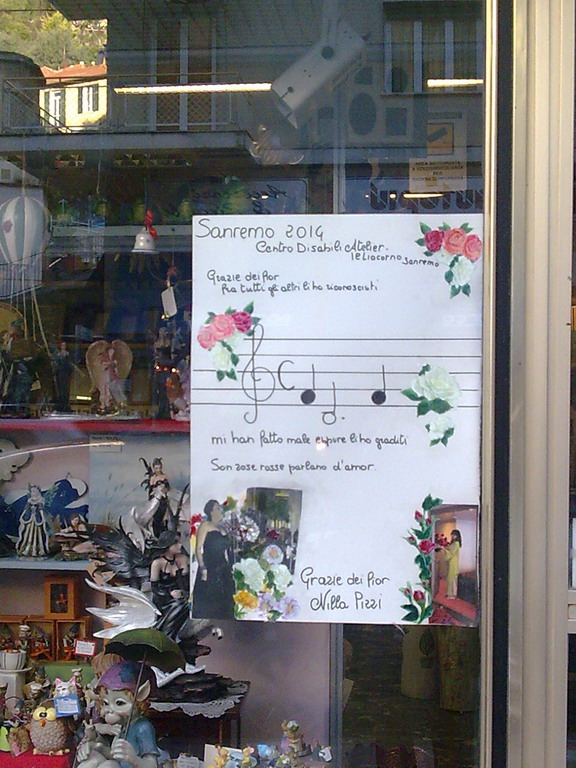 Sanremo 2014
Centro Disabili Atelier
le Liocorno Sanremo
Grazie dei fior
fra tutti gli altri li ho riconosciuti
mi han fatto male eppure li ho graditi
Son rose rosse parlano d'amor.
Grazie dei fior
Nilla Pizzi